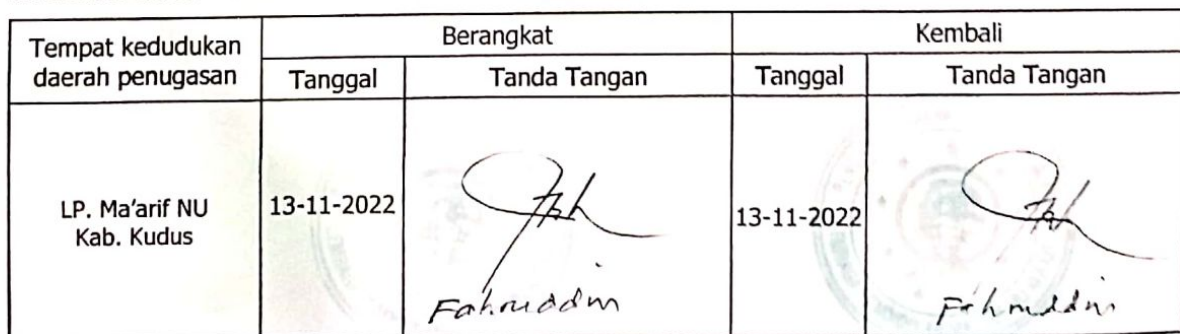 Tempat kedudukan
daerah penugasan
Berangkat
Kembali
Tanggal
Tanda Tangan
Tanggal
Tanda Tangan
LP. Ma'arif NU
Kab. Kudus
13-11-2022
Fahruddin
13-11-2022
Fahruddin